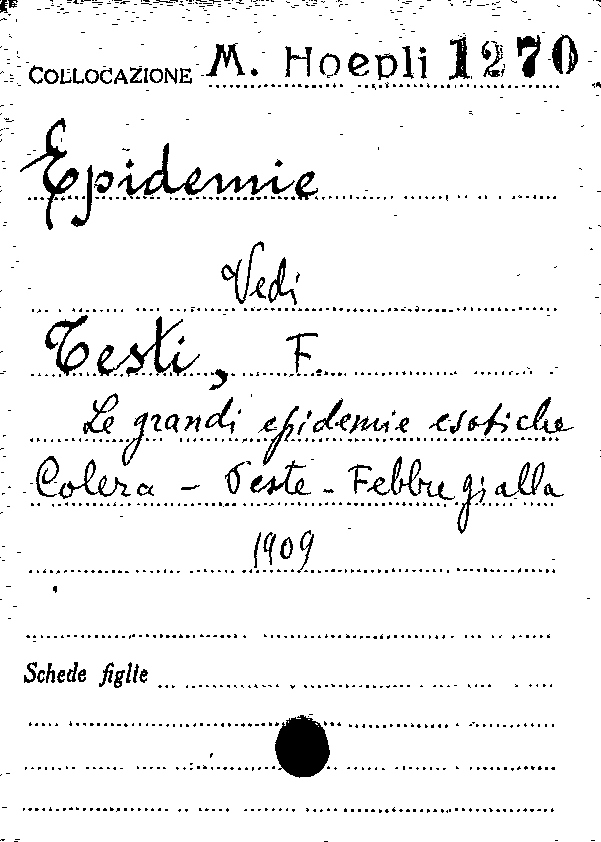 COLLOCAZIONE M. Hoepli 1270
Epidemie
Vedi
Testi, F.
Le grandi epidemie esotiche
Colera - Peste - Febbre gialla
1909
Schede figlie